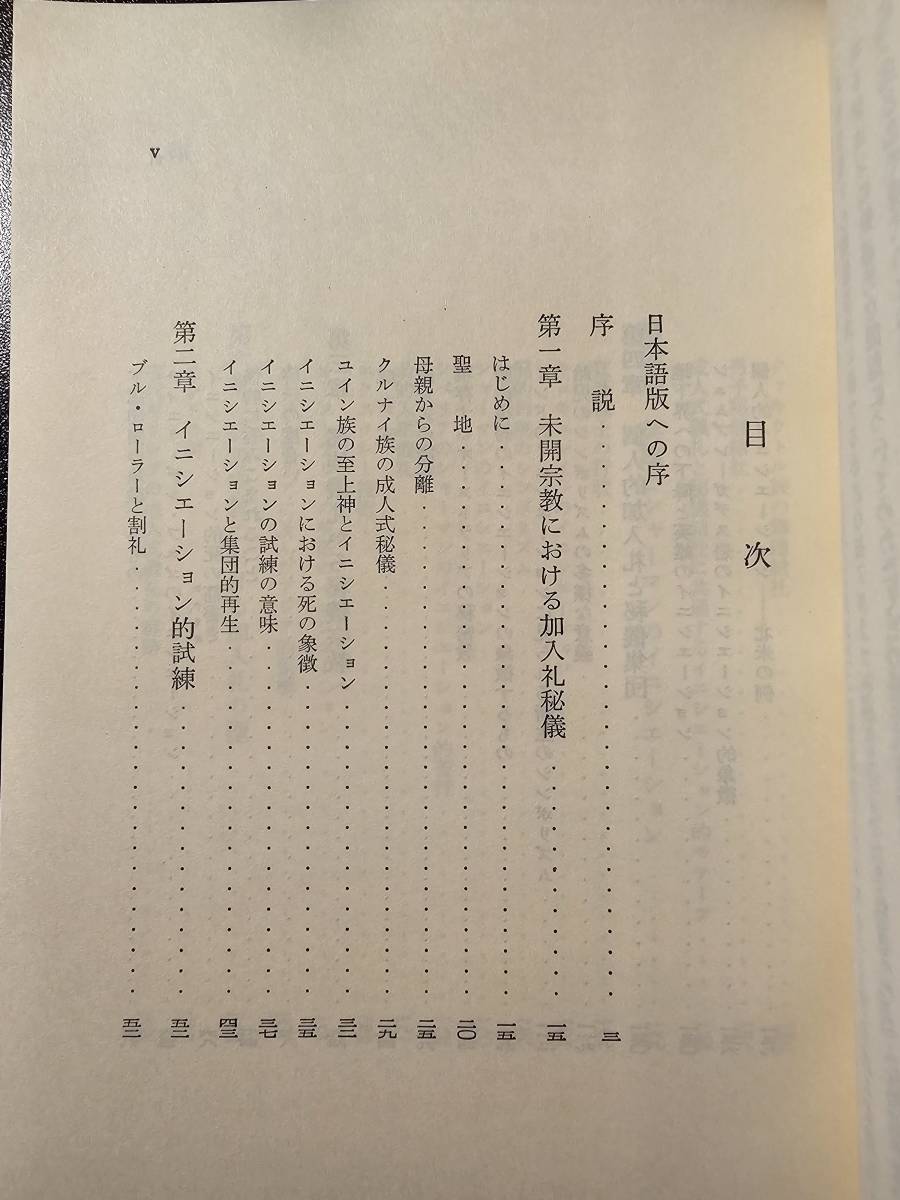 目次
日本語版への序
序説......三
第一章 未開宗教における加入礼秘儀......一五
はじめに......一五
聖地......二〇
母親からの分離......二五
クルナイ族の成人式秘儀......二九
ユイン族の至上神とイニシエーション......三二
イニシエーションにおける死の象徴......三五
イニシエーションの試練の意味......三七
イニシエーションと集団的再生......四三
第二章 イニシエーション的試練......五二
ブル・ローラーと割礼......五二
v